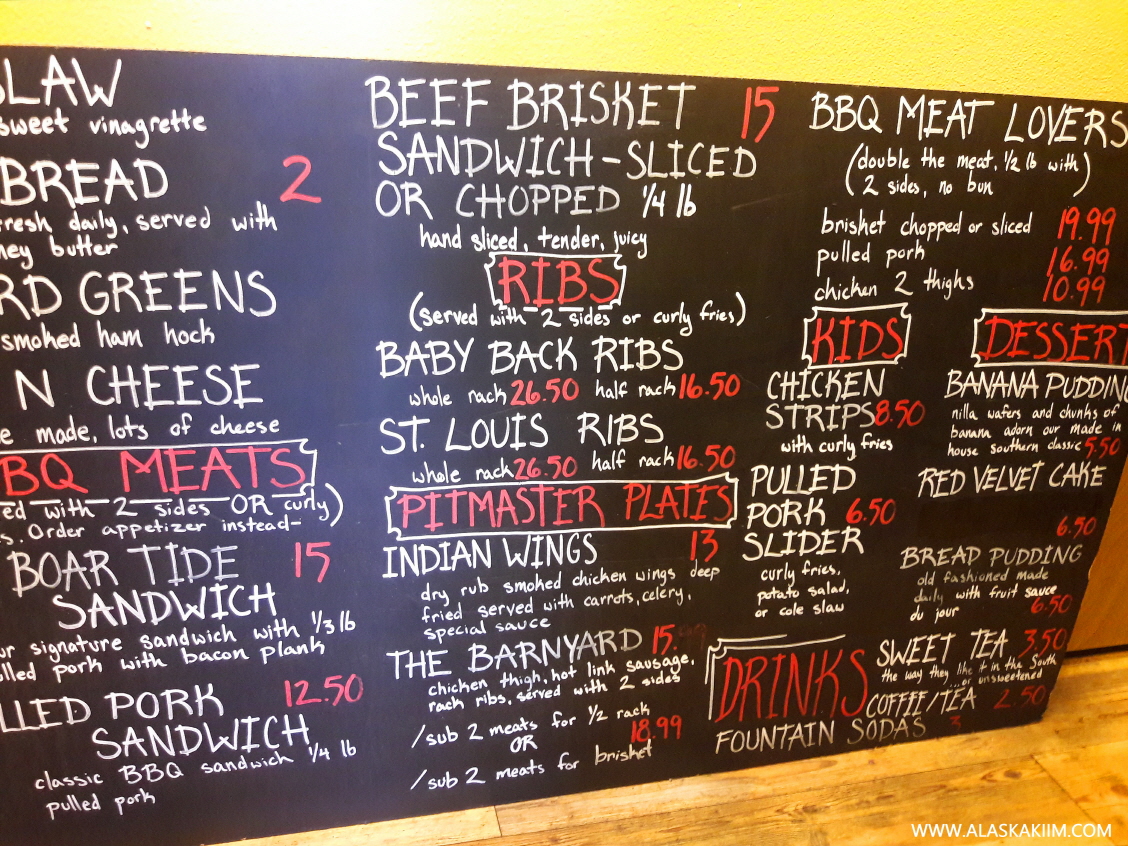 SLAW
sweet vinagrette
BREAD 2
fresh daily, served with
butter
GREENS
smoked ham hock
N CHEESE
made, lots of cheese
BBQ MEATS
with 2 sides OR curly)
Order appetizer instead-
BOAR TIDE 15
SANDWICH
signature sandwich with 1/3 lb
pulled pork with bacon plank
PORK 12.50
SANDWICH
classic BBQ sandwich 1/4 lb
pulled pork
BEEF BRISKET 15
SANDWICH-SLICED
OR CHOPPED 1/4 lb
hand sliced, tender, juicy
RIBS
(served with 2 sides or curly fries)
BABY BACK RIBS
whole rack 26.50 half rack 16.50
ST. LOUIS RIBS
whole rack 26.50 half rack 16.50
PITMASTER PLATES
INDIAN WINGS 13
dry rub smoked chicken wings deep
fried served with carrots, celery,
special sauce
THE BARNYARD 15.99
chicken thigh, hot link sausage,
rack ribs, served with 2 sides
/sub 2 meats for 1/2 rack
OR 18.99
/sub 2 meats for brisket
BBQ MEAT LOVERS
(double the meat, 1/2 lb with
2 sides, no bun)
brisket chopped or sliced 19.99
pulled pork 16.99
chicken 2 thighs 10.99
KIDS
CHICKEN
STRIPS 8.50
with curly fries
PULLED
PORK 6.50
SLIDER
curly fries,
potato salad,
or cole slaw
DESSERT
BANANA PUDDING
nilla wafers and chunks of
banana adorn our made in
house southern classic 5.50
RED VELVET CAKE
6.50
BREAD PUDDING
old fashioned made
daily with fruit sauce
du jour 6.50
DRINKS
SWEET TEA 3.50
the way they like it in the South
...or unsweetened
COFFEE/TEA 2.50
FOUNTAIN SODAS 3
WWW.ALASKAKIIM.COM